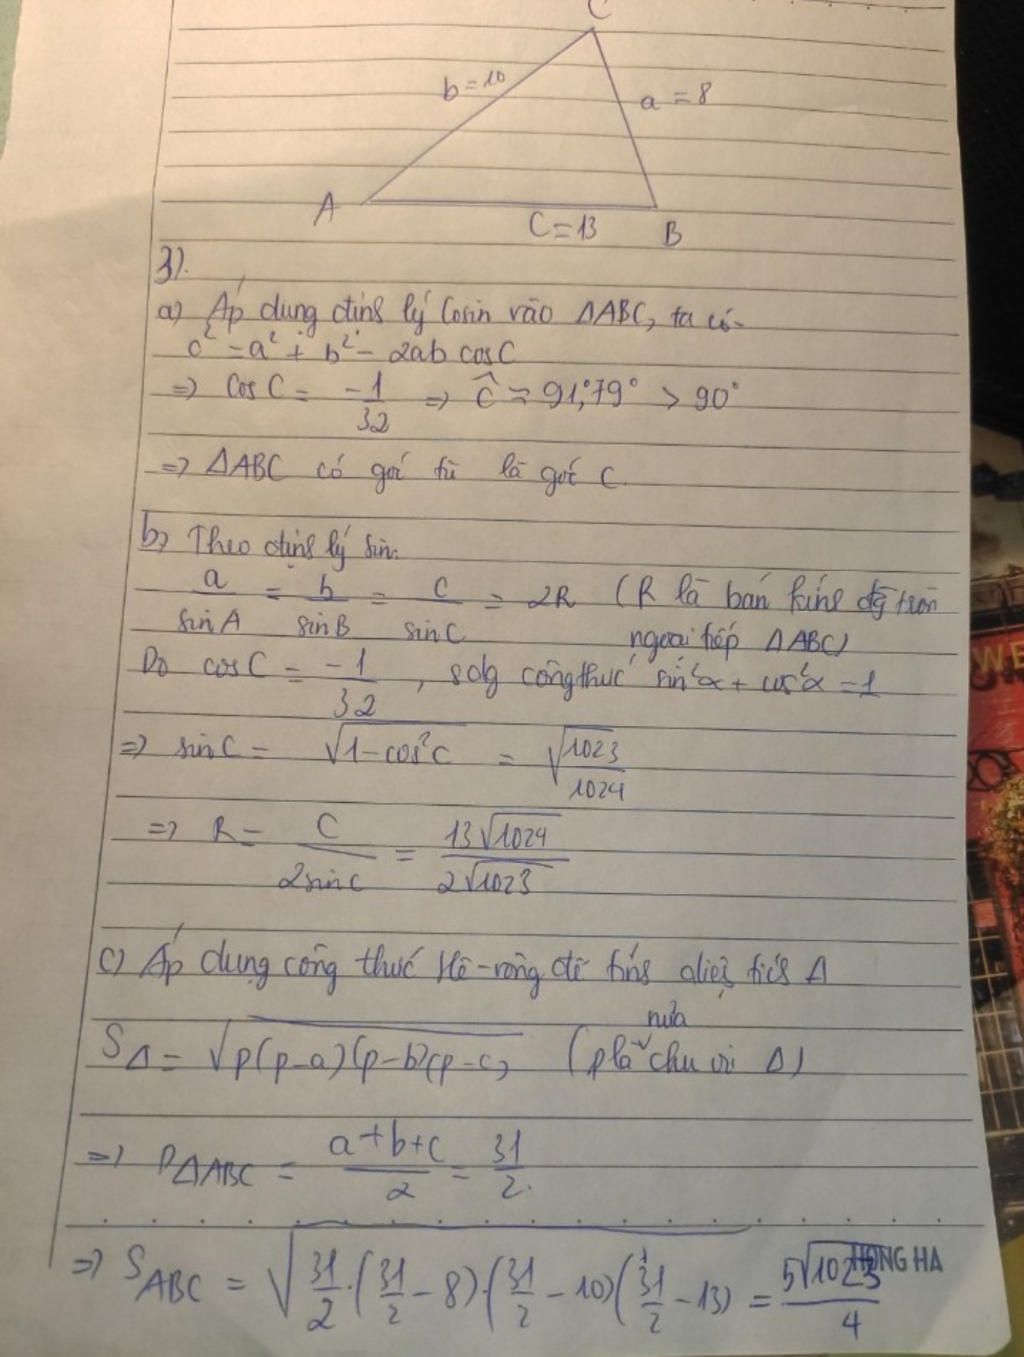 C
b = 10
a = 8
A
C = 13
B
3).
a) Áp dụng định lý Cosin vào ΔABC, ta có
c² = a² + b² - 2ab cosC
=> Cos C = -1/32 => Ĉ ≈ 91,79° > 90°
=> ΔABC có góc tù là góc C
b) Theo định lý sin.
a/sinA = b/sinB = C/sinC = 2R (R là bán kính đg tròn
ngoại tiếp ΔABC)
Do cosC = -1/32, sdg công thức sin²α + cos²α = 1
=> sinC = √1-cos²C = √1023/1024
=> R = C/2sinC = 13√1024/2√1023
c) Áp dụng công thức Hê-rông để tính diện tích Δ
S_Δ = √p(p-a)(p-b)(p-c) (p là nửa chu vi Δ)
=> P_ΔABC = a+b+c/2 = 31/2.
=> S_ABC = √31/2.(31/2 - 8).(31/2 - 10)(31/2 - 13) = 5√1023/4
HONG HA